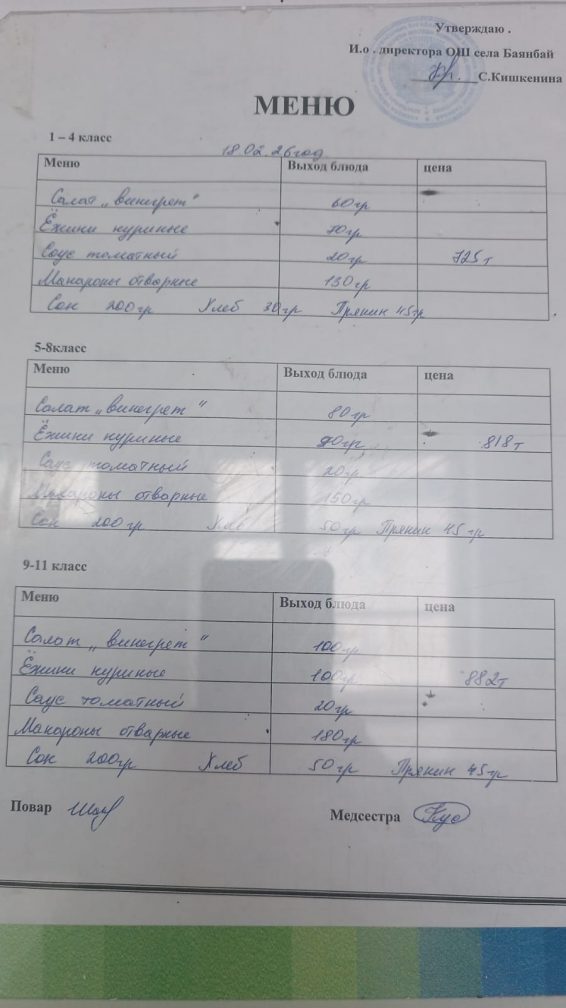 Утверждаю .
И.о . директора ОШ села Баянбай
С.Кишкенина
МЕНЮ
1 – 4 класс
18.02.26год
Меню Выход блюда цена
Салат „винегрет" 60гр
Ёжики куриные 70гр
Соус томатный 20гр 725т
Макароны отварные 130гр
Сок 200гр Хлеб 30гр Пряник 45гр
5-8класс
Меню Выход блюда цена
Салат „винегрет" 80гр
Ёжики куриные 90гр 818т
Соус томатный 20гр
Макароны отварные 150гр
Сок 200гр Хлеб 50гр Пряник 45гр
9-11 класс
Меню Выход блюда цена
Салат „винегрет" 100гр
Ёжики куриные 100гр 882т
Соус томатный 20гр
Макароны отварные 180гр
Сок 200гр Хлеб 50гр Пряник 45гр
Повар Медсестра